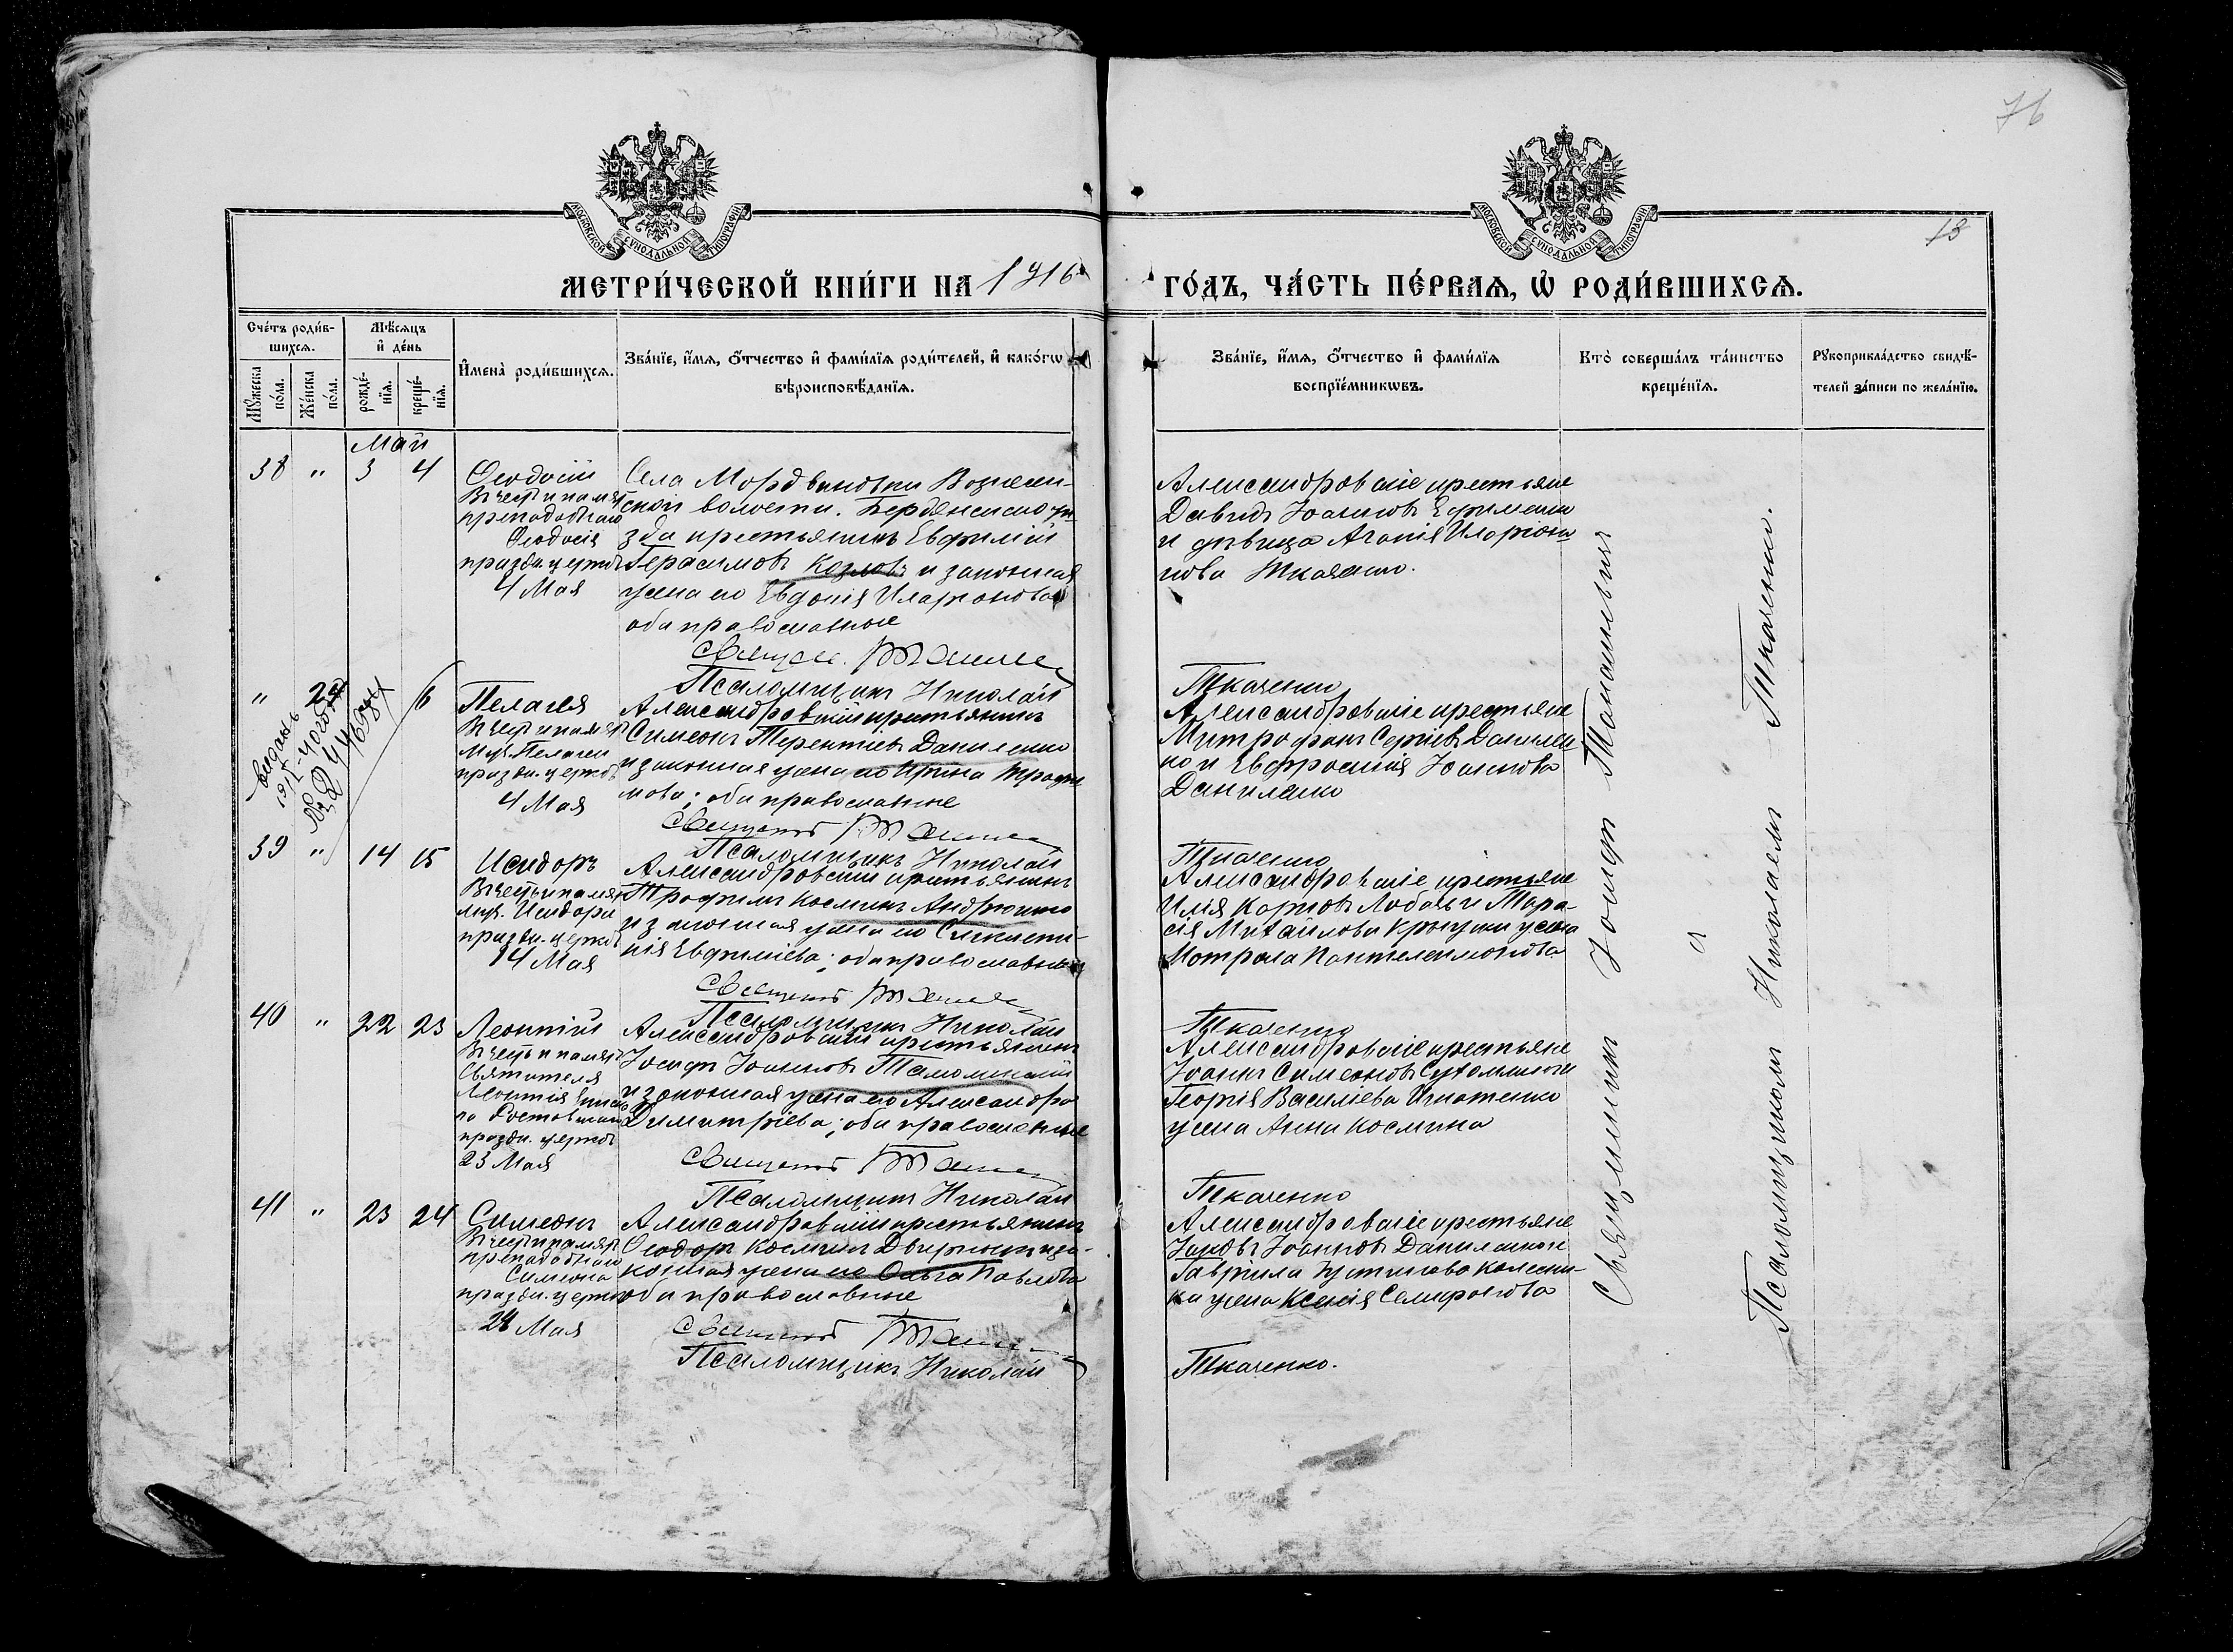 76
13
МОСКОВСКОЙ СУНОДАЛЬНОЙ ТИПОГРАФІИ
МОСКОВСКОЙ СУНОДАЛЬНОЙ ТИПОГРАФІИ
МЕТРИ́ЧЕСКОЙ КНИ́ГИ НА 1916
ГО́ДЪ, ЧА́СТЬ ПЕ́РВАѦ, Ѡ҆ РОДИ́ВШИХСѦ.
Сче́тъ роди́в-
шихсѧ.
Мѣ́сѧцъ
и҆ де́нь
Мꙋ́жеска
по́ла.
Же́нска
по́ла.
рожде́-
нїѧ.
креще́-
нїѧ.
И҆мена̀ роди́вшихсѧ.
Зва́нїе, и҆́мѧ, ѻ҆́тчество и҆ фами́лїѧ роди́телей, и҆ како́гѡ
вѣроисповѣ́данїѧ.
Зва́нїе, и҆́мѧ, ѻ҆́тчество и҆ фами́лїѧ
воспрїе́мникѡвъ.
Кто̀ соверша́лъ та́инство
креще́нїѧ.
Рꙋкоприкла́дство свидѣ́-
телей за́писи по жела́нїю.
Май
38 " 3 4
Ѳеодосій
Въ честь и памят
преподобнаго
Ѳеодосія
праздн. церков
4 Мая
Села Мордвиновки Вознесен-
ской волости. Бердянскаго уѣ-
зда крестьянинъ Евфимій
Герасимовъ Козловъ и законная
жена его Евдокія Иларіонова
оба православные
Священ.
Псаломщикъ Николай
Александровскіе крестьяне
Давидъ Іоанновъ Ефименко
и дѣвица Агапія Иларіоно-
нова Ткаченко.
Ткаченко
" 6
Выдан
Пелагея
Въ честь и памят
муч. Пелагеи
праздн. церков
4 Мая
Александровскій крестьянинъ
Симеонъ Терентіевъ Даниленко
и законная жена его Ирина Трофи
мова; оба православные
Священникъ
Псаломщикъ Николай
Александровскіе крестьяне
Митрофанъ Сергіевъ Данилен
ко и Евфросинія Іоаннова
Даниленко
Ткаченко
39 " 14 15
Исидоръ
Въ честь и памят
муч. Исидора
праздн. церков
14 Мая
Александровскій крестьянинъ
Трофимъ Косминъ Андрющенко
и законная жена его Синклити-
кія Евфиміева; оба православные
Священникъ
Псаломщикъ Николай
Александровскіе крестьяне
Илія Карповъ Лобачъ и Тара-
сія Михайлова жена
Матрона Пантелеимонова
Ткаченко
40 " 22 23
Леонтій
Въ честь и памят
Святителя
Леонтія Еписко
па Ростовскаго
праздн. церков
23 Мая
Александровскій крестьянинъ
Іосифъ Іоанновъ
и законная жена его Александра
Димитріева; оба православные
Священникъ
Псаломщикъ Николай
Александровскіе крестьяне
Іоаннъ Симеоновъ
Георгія Василіева Игнатенко
жена Анна Космина
Ткаченко
41 " 23 24
Симеонъ
Въ честь и памят
преподобнаго
Симеона
праздн. церков
24 Мая
Александровскій крестьянинъ
Ѳеодоръ Косминъ и за-
конная жена его Ольга Павлова
оба православные
Священникъ
Псаломщикъ Николай
Александровскіе крестьяне
Іаковъ Іоанновъ Даниленко и
Гавріила Іустинова Колесни-
ка жена Ксенія Самфронова
Ткаченко.
Священникъ Іосифъ
и
Псаломщикомъ Николаемъ Ткаченко.